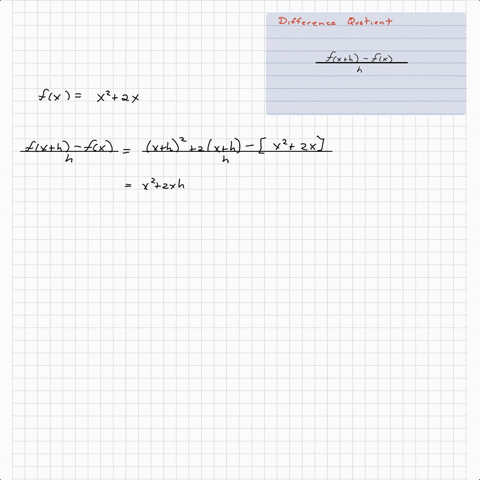 Difference Quotient
f(x+h) - f(x)
h
f(x) = x²+2x
f(x+h) - f(x) = (x+h)² + 2(x+h) - [x² + 2x]
h h
= x²+2xh